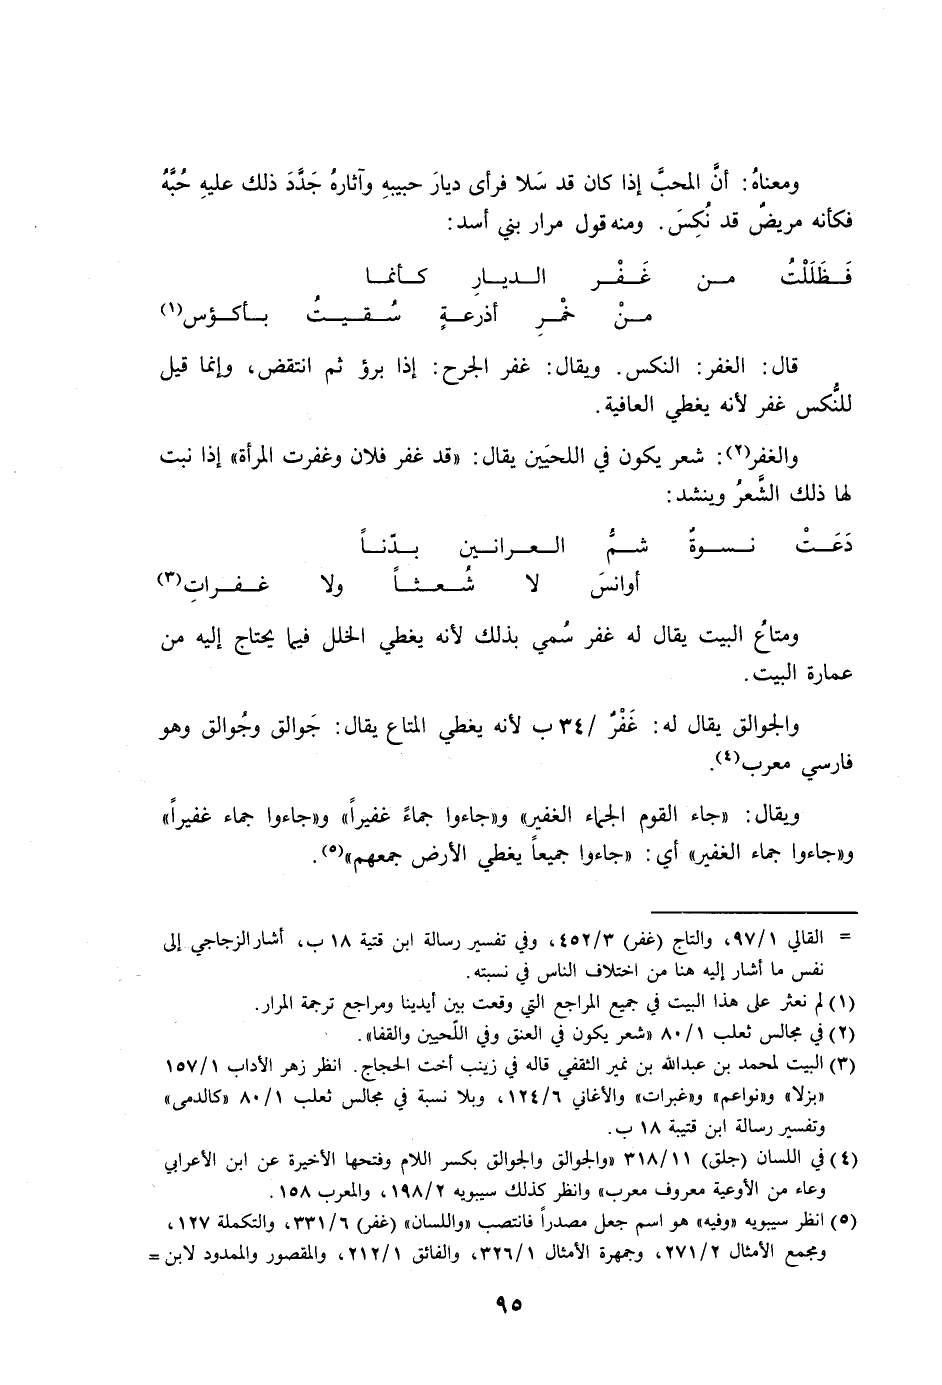 ومعناهُ: أنَّ المحبَّ إذا كان قد سَلا فرأى ديارَ حبيبهِ وآثارهُ جَدَّدَ ذلك عليهِ حُبَّهُ
فكأنه مريضٌ قد نُكِسَ. ومنه قول مرار بني أسد:
فَظَلَلْتُ من غَفْر الديارِ كأنما
منْ خمْرِ أذرعةٍ سُقيتُ بأكؤس(١)
قال: الغفر: النكس. ويقال: غفر الجرح: إذا برؤ ثم انتقض، وإنما قيل
للنُّكس غفر لأنه يغطي العافية.
والغفر(٢): شعر يكون في اللحيَين يقال: «قد غفر فلان وغفرت المرأة» إذا نبت
لها ذلك الشَّعرُ وينشد:
دَعَتْ نسوةٌ شمُّ العرانين بدّناً
أوانسَ لا شُعثاً ولا غفراتِ(٣)
ومتاعُ البيت يقال له غفر سُمي بذلك لأنه يغطي الخلل فيما يحتاج إليه من
عمارة البيت.
والجوالق يقال له: غَفْرٌ /٣٤ ب لأنه يغطي المتاع يقال: جَوالق وجُوالق وهو
فارسي معرب(٤).
ويقال: «جاء القوم الجماء الغفير» و«جاءوا جماءً غفيراً» و«جاءوا جماء غفيراً»
و«جاءوا جماء الغفير» أي: «جاءوا جميعاً يغطي الأرض جمعهم»(٥).
= القالي ٩٧/١، والتاج (غفر) ٤٥٢/٣، وفي تفسير رسالة ابن قتية ١٨ ب، أشار الزجاجي إلى
نفس ما أشار إليه هنا من اختلاف الناس في نسبته.
(١) لم نعثر على هذا البيت في جميع المراجع التي وقعت بين أيدينا ومراجع ترجمة المرار.
(٢) في مجالس ثعلب ٨٠/١ «شعر يكون في العنق وفي اللّحيين والقفا».
(٣) البيت لمحمد بن عبدالله بن نمير الثقفي قاله في زينب أخت الحجاج. انظر زهر الأداب ١٥٧/١
«بزلا» و«نواعم» و«غبرات» والأغاني ١٢٤/٦، وبلا نسبة في مجالس ثعلب ٨٠/١ «كالدمى»
وتفسير رسالة ابن قتيبة ١٨ ب.
(٤) في اللسان (جلق) ٣١٨/١١ «والجوالق والجوالق بكسر اللام وفتحها الأخيرة عن ابن الأعرابي
وعاء من الأوعية معروف معرب» وانظر كذلك سيبويه ١٩٨/٢، والمعرب ١٥٨.
(٥) انظر سيبويه «وفيه» هو اسم جعل مصدراً فانتصب «واللسان» (غفر) ٣٣١/٦، والتكملة ١٢٧،
ومجمع الأمثال ٢٧١/٢، وجمهرة الأمثال ٣٢٦/١، والفائق ٢١٢/١، والمقصور والممدود لابن =
٩٥